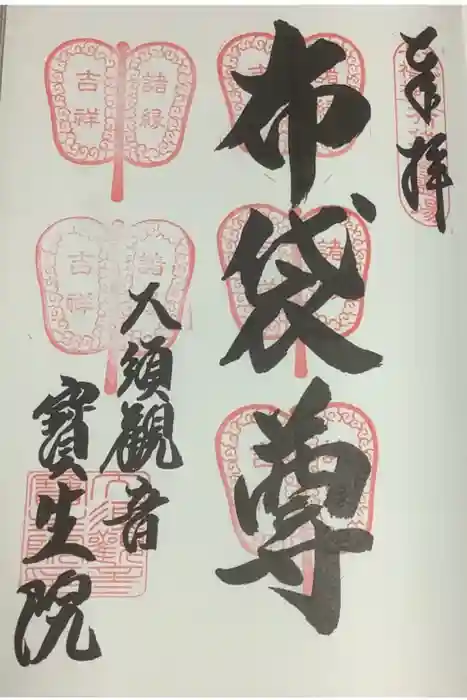 奉拝
布袋尊
諸縁
吉祥
諸縁
吉祥
大須觀音
寶生院